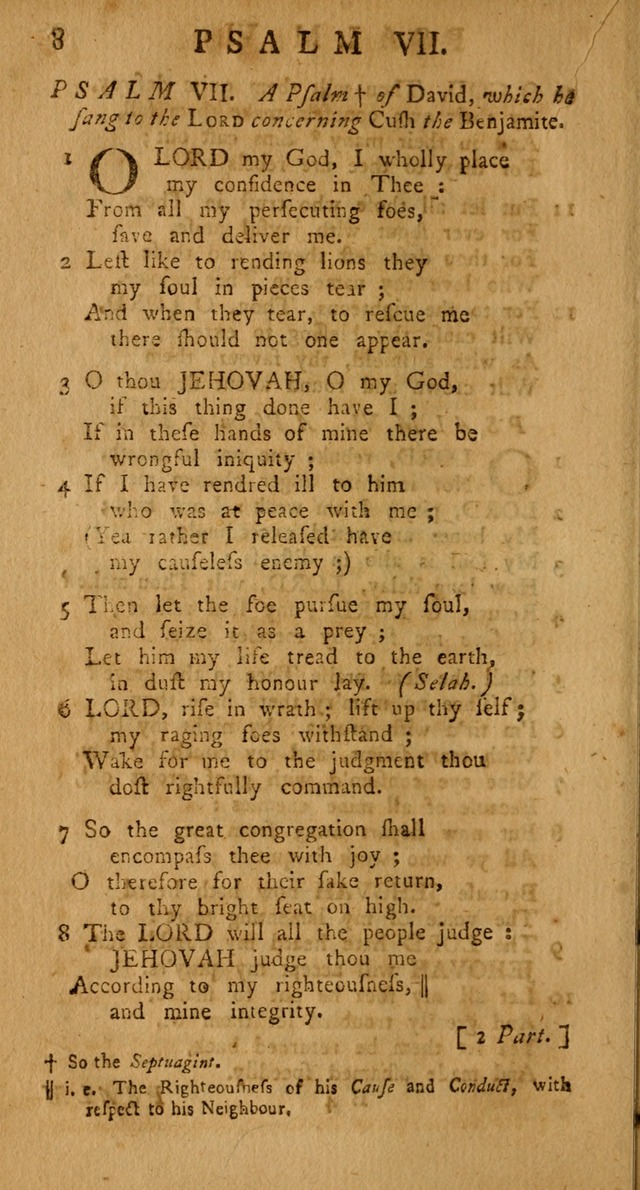 8 PSALM VII.
PSALM VII. A Pſalm † of David, which he
ſang to the LORD concerning Cuſh the Benjamite.
1 O LORD my God, I wholly place
my confidence in Thee :
From all my perſecuting foes,
ſave and deliver me.
2 Leſt like to rending lions they
my ſoul in pieces tear ;
And when they tear, to reſcue me
there ſhould not one appear.
3 O thou JEHOVAH, O my God,
if this thing done have I ;
If in theſe hands of mine there be
wrongful iniquity ;
4 If I have rendred ill to him
who was at peace with me ;
(Yea rather I releaſed have
my cauſeleſs enemy ;)
5 Then let the foe purſue my ſoul,
and ſeize it as a prey ;
Let him my life tread to the earth,
in duſt my honour lay. (Selah.)
6 LORD, riſe in wrath ; lift up thy ſelf ;
my raging foes withſtand ;
Wake for me to the judgment thou
doſt rightfully command.
7 So the great congregation ſhall
encompaſs thee with joy ;
O therefore for their ſake return,
to thy bright ſeat on high.
8 The LORD will all the people judge :
JEHOVAH judge thou me
According to my righteouſneſs, ||
and mine integrity.
[ 2 Part. ]
† So the Septuagint.
|| i. e. The Righteouſneſs of his Cauſe and Conduct, with
reſpect to his Neighbour.